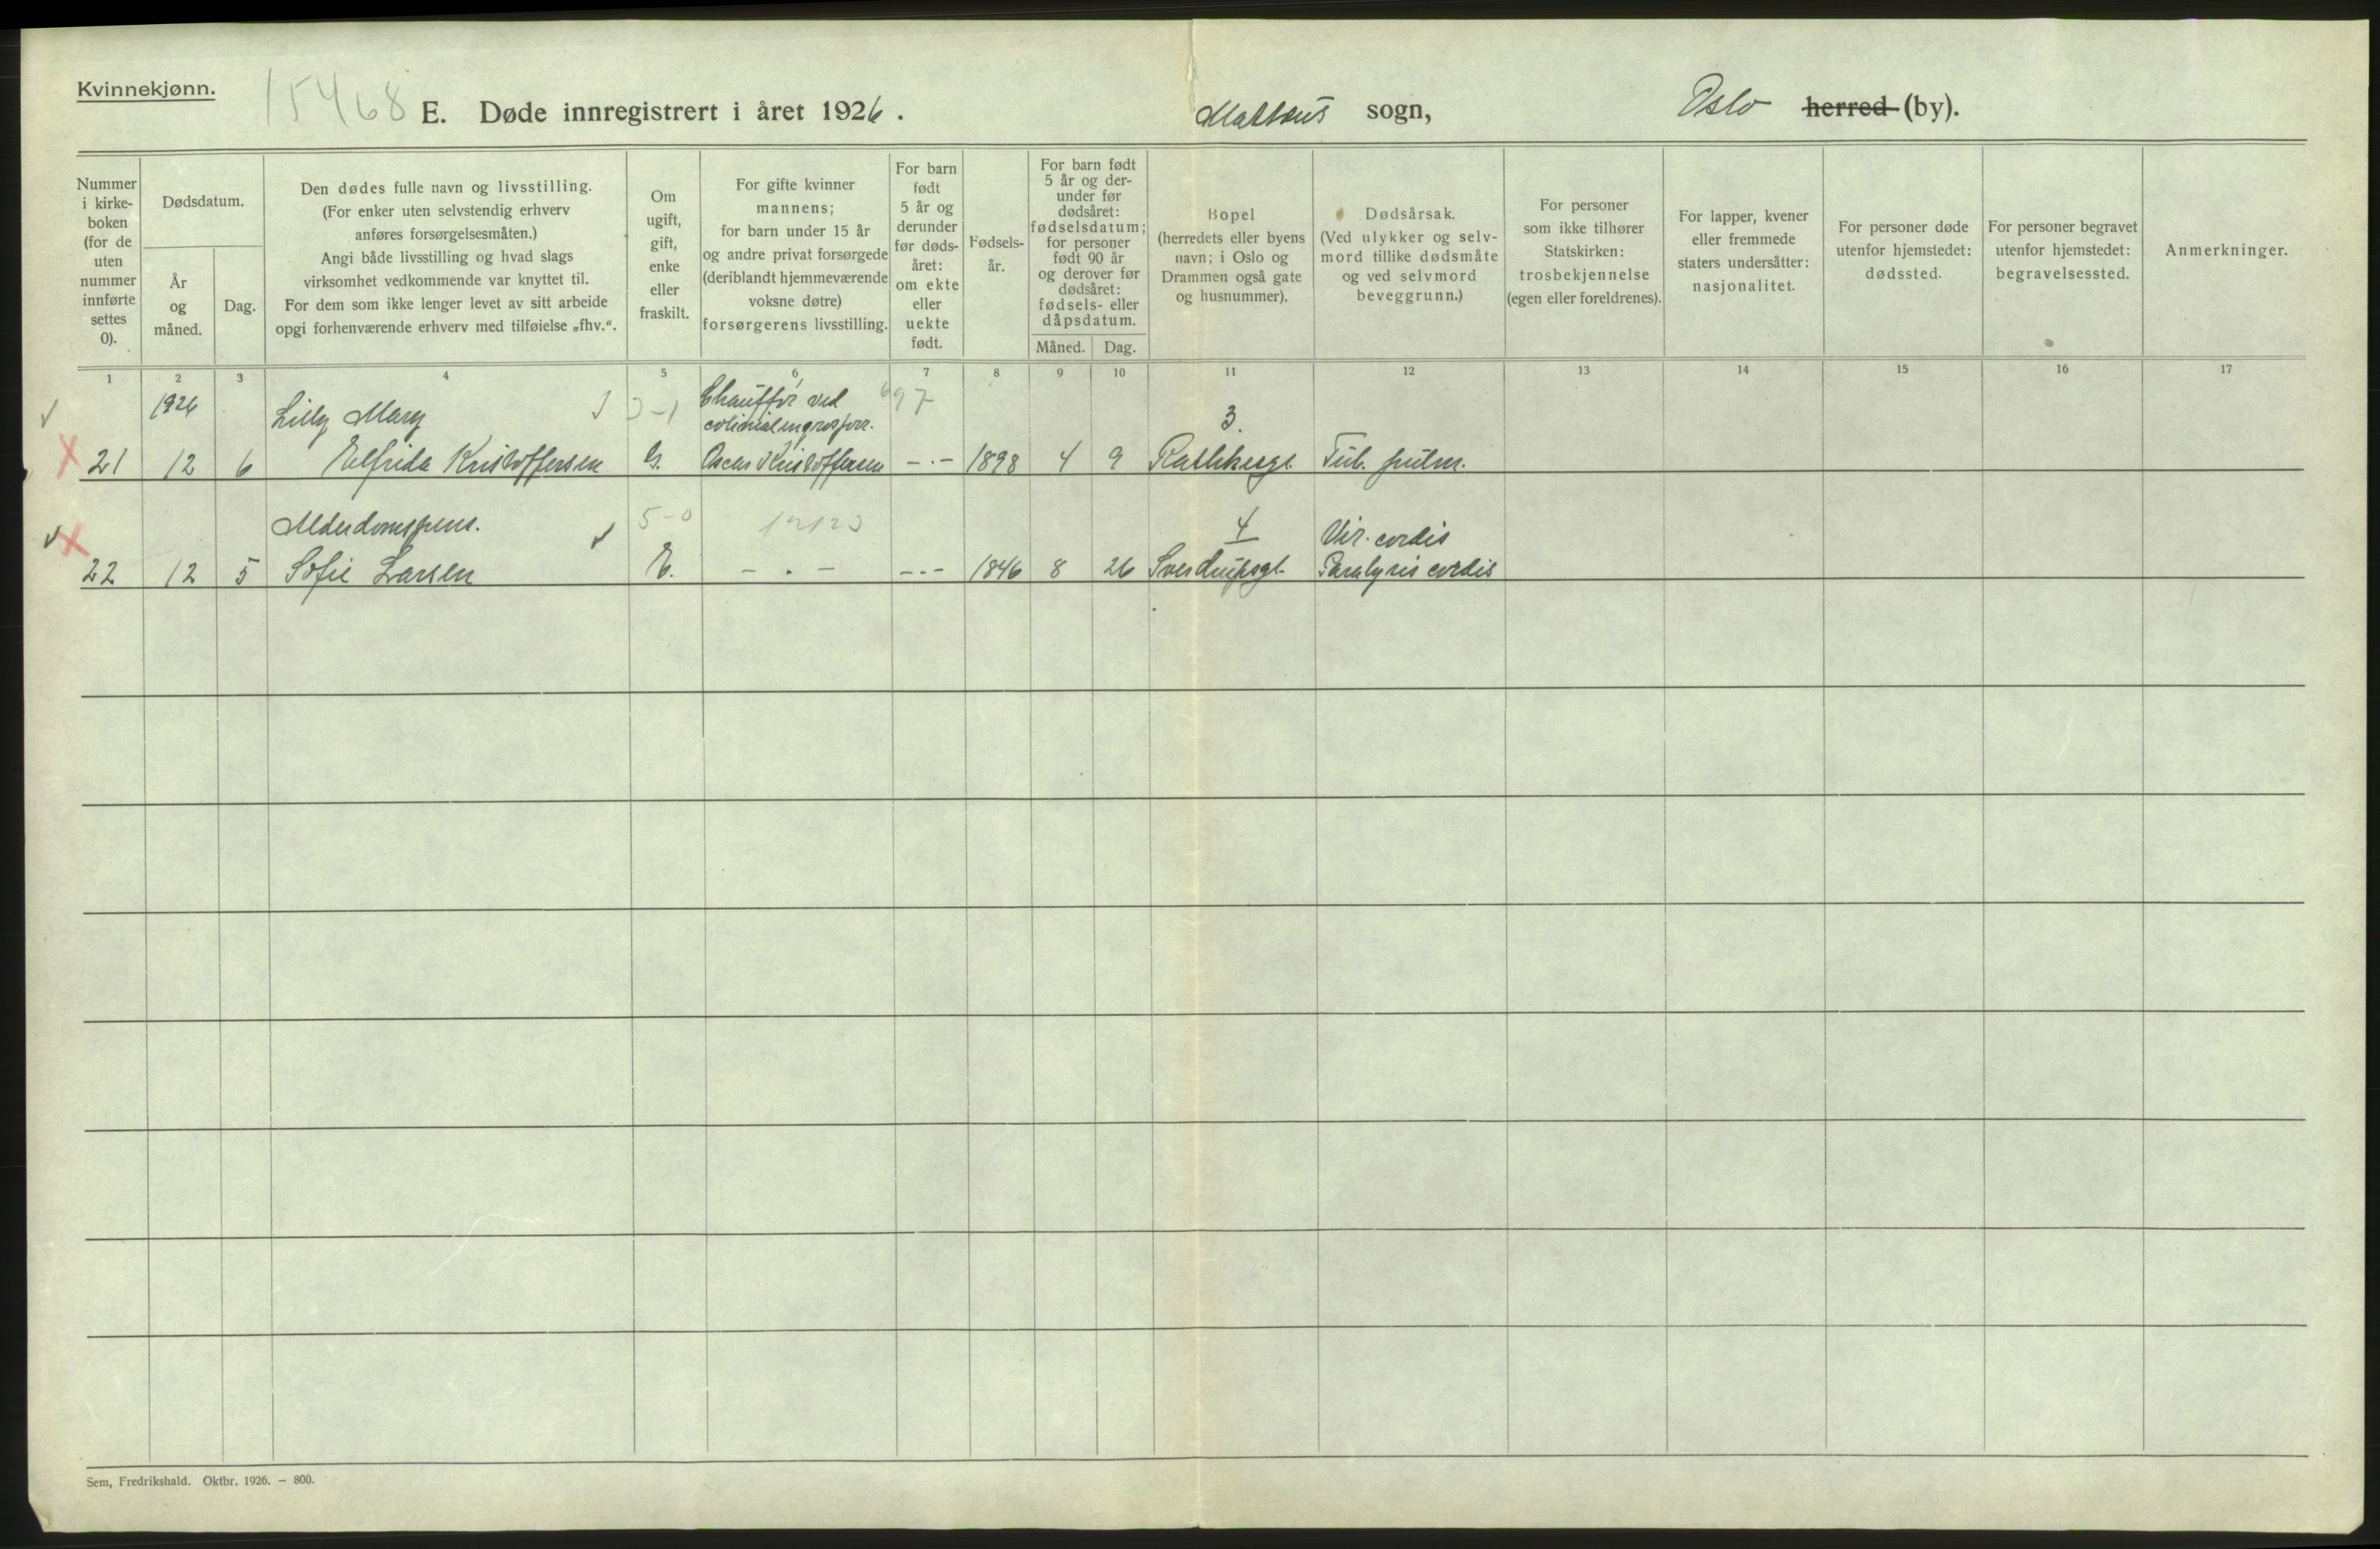 Kvinnekjønn.
15468
E. Døde innregistrert i året 1926.
Mattæus sogn,
Oslo herred (by).
Nummer
i kirke-
boken
(for de
uten
nummer
innførte
settes
0).
Dødsdatum.
År
og
måned.
Dag.
Den dødes fulle navn og livsstilling.
(For enker uten selvstendig erhverv
anføres forsørgelsesmåten.)
Angi både livsstilling og hvad slags
virksomhet vedkommende var knyttet til.
For dem som ikke lenger levet av sitt arbeide
opgi forhenværende erhverv med tilføielse „fhv.“.
Om
ugift,
gift,
enke
eller
fraskilt.
For gifte kvinner
mannens;
for barn under 15 år
og andre privat forsørgede
(deriblandt hjemmeværende
voksne døtre)
forsørgerens livsstilling.
For barn
født
5 år og
derunder
før døds-
året:
om ekte
eller
uekte
født.
Fødsels-
år.
For barn født
5 år og der-
under før
dødsåret:
fødselsdatum;
for personer
født 90 år
og derover før
dødsåret:
fødsels- eller
dåpsdatum.
Måned. Dag.
Bopel
(herredets eller byens
navn; i Oslo og
Drammen også gate
og husnummer).
Dødsårsak.
(Ved ulykker og selv-
mord tillike dødsmåte
og ved selvmord
beveggrunn.)
For personer
som ikke tilhører
Statskirken:
trosbekjennelse
(egen eller foreldrenes).
For lapper, kvener
eller fremmede
staters undersåtter:
nasjonalitet.
For personer døde
utenfor hjemstedet:
dødssted.
For personer begravet
utenfor hjemstedet:
begravelsessted.
Anmerkninger.
1 2 3 4 5 6 7 8 9 10 11 12 13 14 15 16 17
1926 Lilly Mary Chauffør ved 697 3.
colonialengrosforr.
21 12 6 Elfrida Kristoffersen G. Oscar Kristoffersen -.- 1898 4 9 Rathkesgt. Tub. pulm.
Alderdomspens. 5-0 4 Vit. cordis
22 12 5 Sofie Larsen E. - . - -.- 1846 8 26 Sverdrupsgt. Paralysis cordis
Sem, Fredrikshald. Oktbr. 1926. — 800.